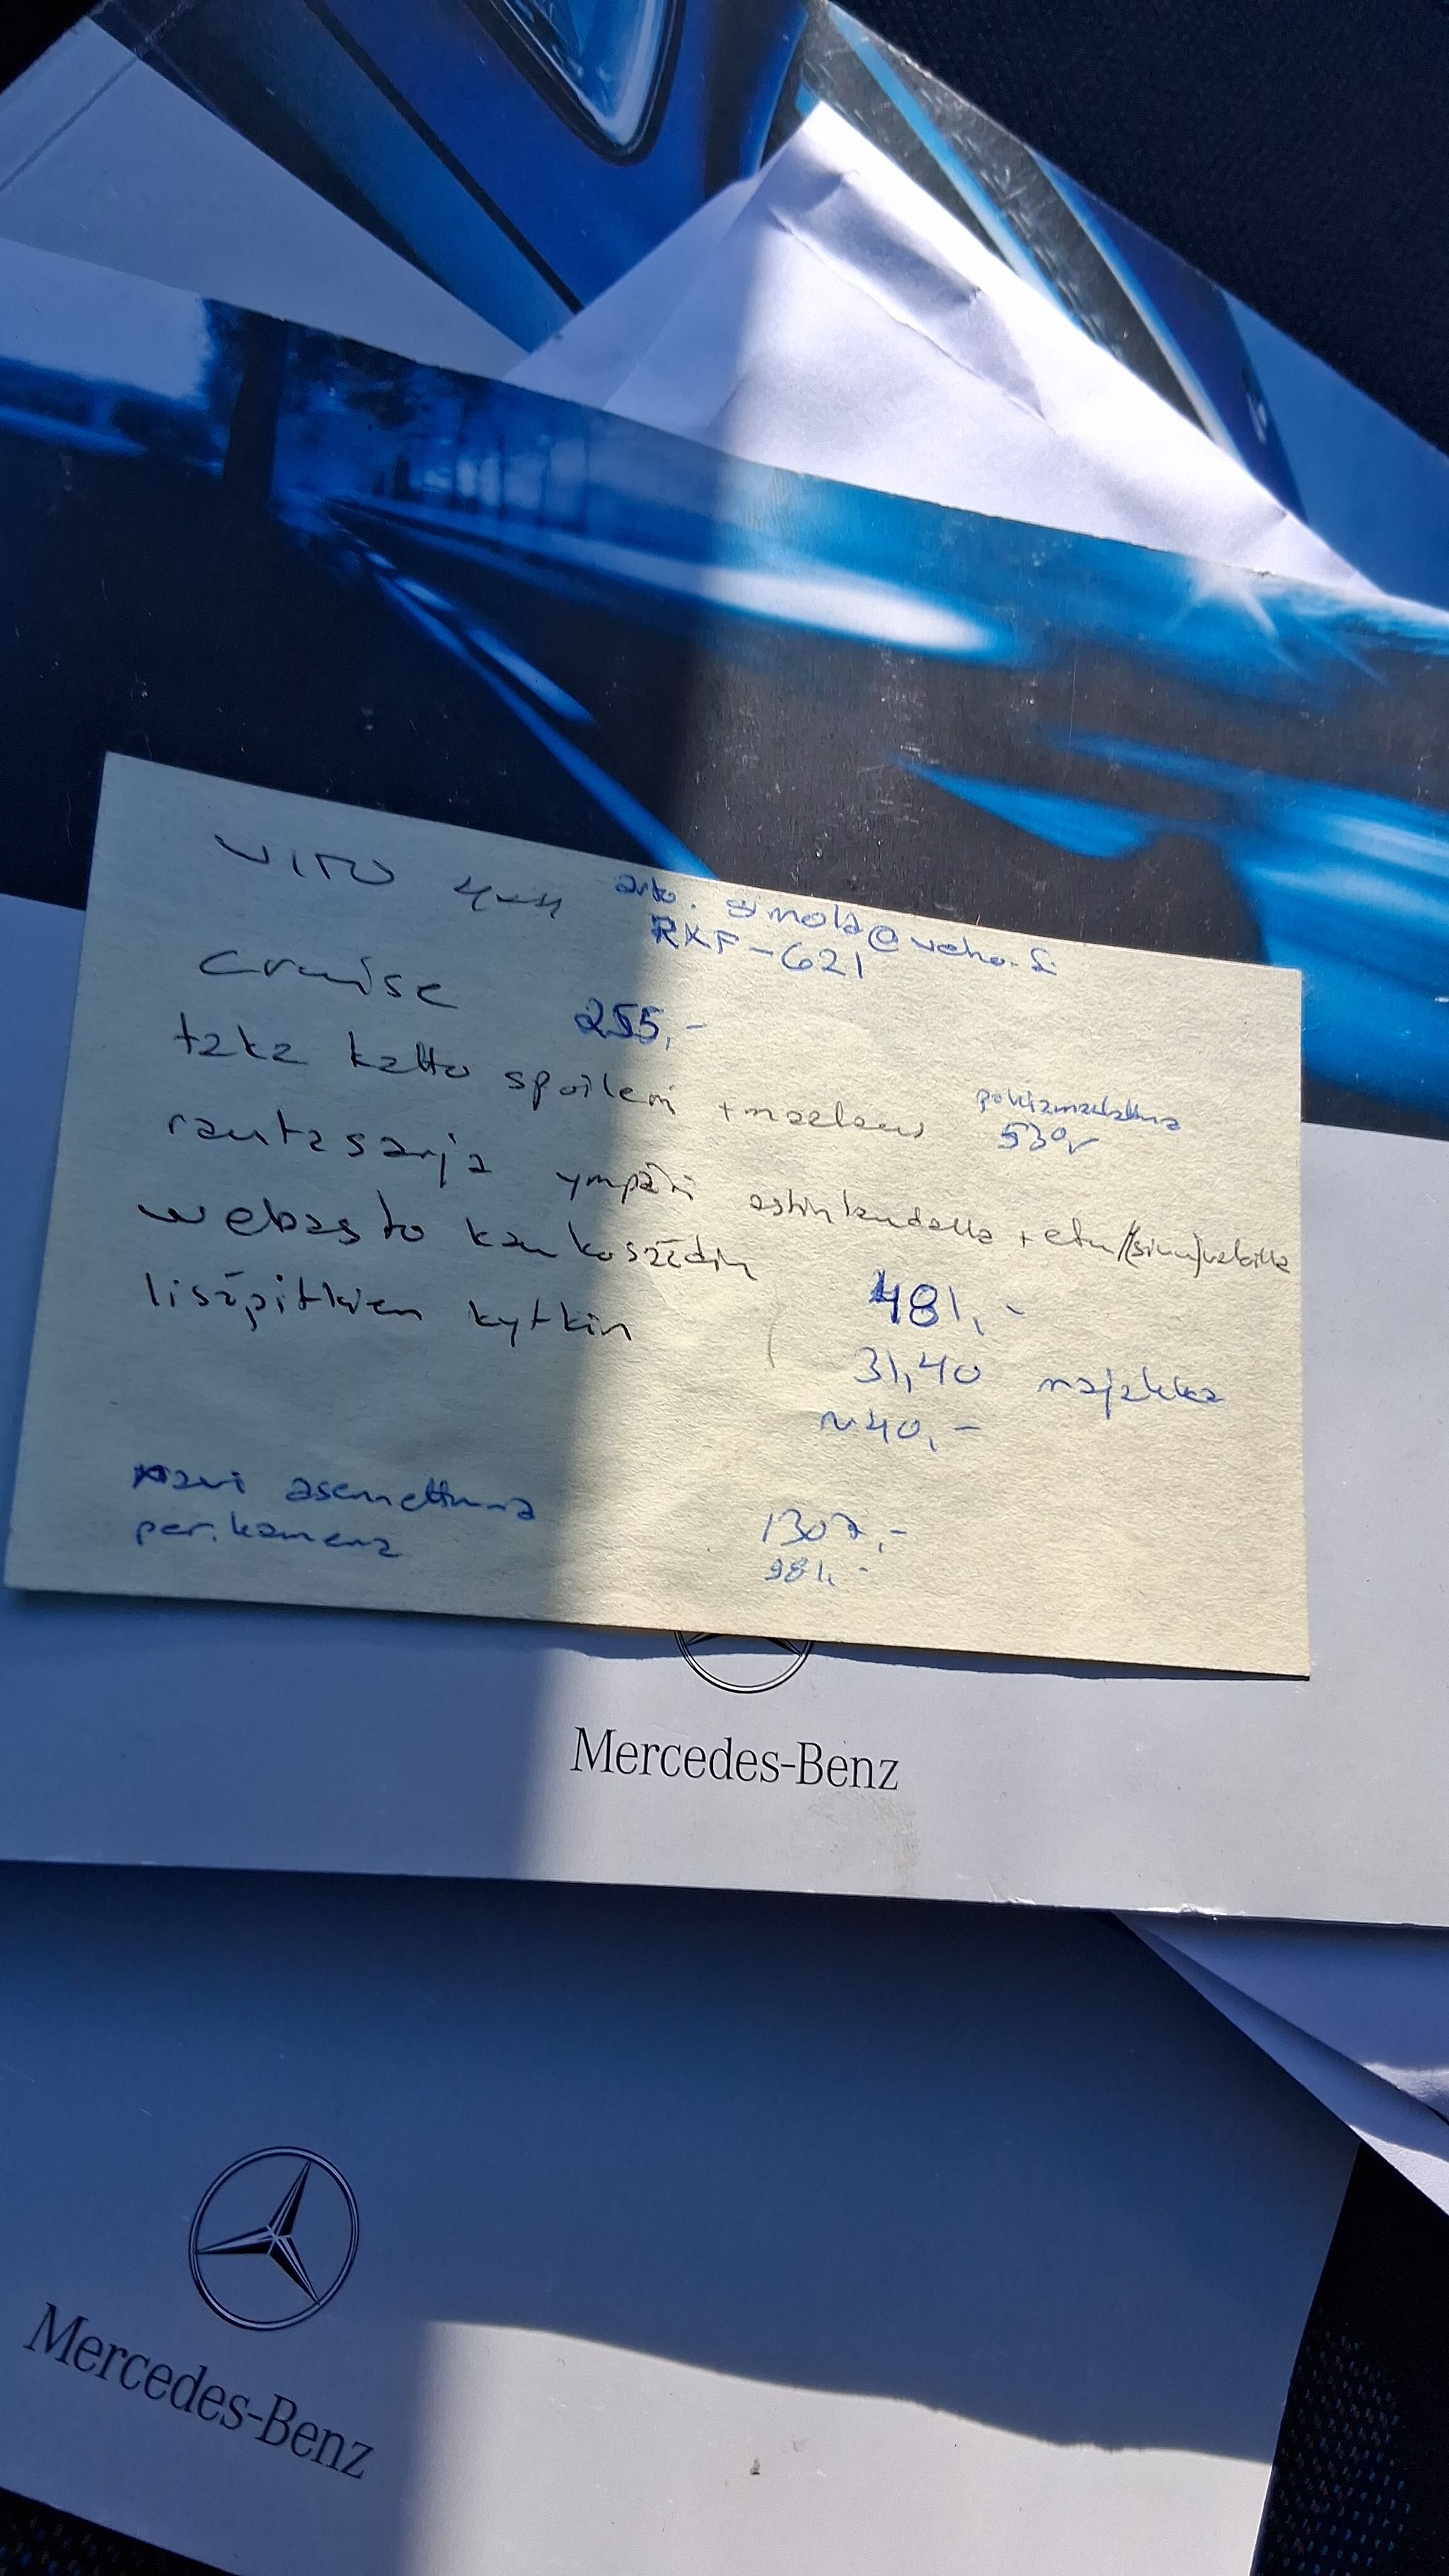 VITO 4x4
RXF-621
cruise 255,-
taka katto spoileri + maalaus
530,-
rautasarja ympäri astinlaudalla + etu/(sivu)valoilla
webasto kaukosäädin 481,-
lisäpitkien kytkin 31,40 majakka
~40,-
navi asennettuna 1307,-
per.kamera 981,-
Mercedes-Benz
Mercedes-Benz